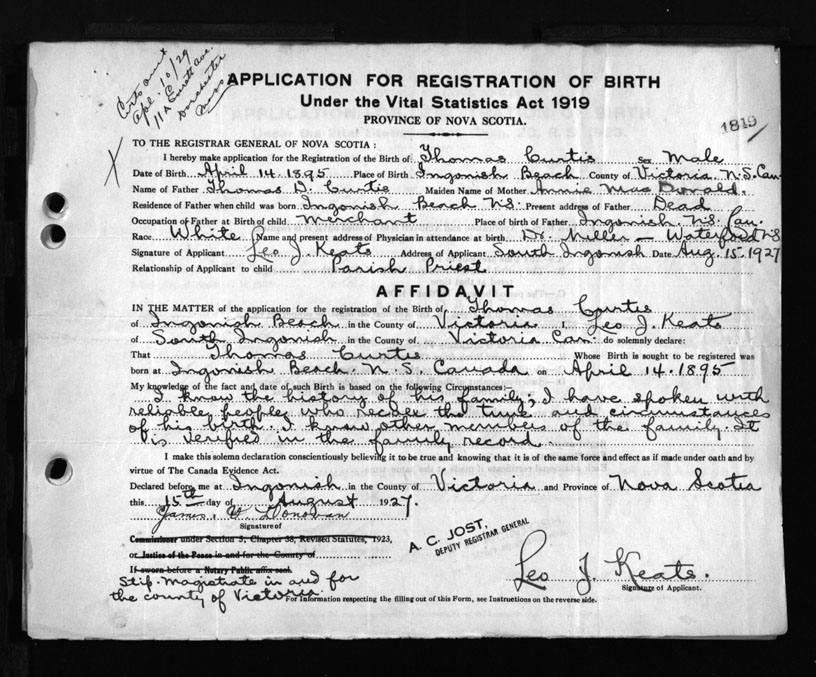 Certs out
Apl. 10/29
11 A
Dorchester
Mass
APPLICATION FOR REGISTRATION OF BIRTH
Under the Vital Statistics Act 1919
PROVINCE OF NOVA SCOTIA.
1819
TO THE REGISTRAR GENERAL OF NOVA SCOTIA :
I hereby make application for the Registration of the Birth of Thomas Curtis Sex Male
Date of Birth April 14. 1895 Place of Birth Ingonish Beach County of Victoria N.S. Can
Name of Father Thomas D. Curtis Maiden Name of Mother Annie Mac Donald.
Residence of Father when child was born Ingonish Beach N.S. Present address of Father Dead
Occupation of Father at Birth of child Merchant Place of birth of Father Ingonish N.S. Can.
Race White Name and present address of Physician in attendance at birth Dr. Miller — Waterford N.S
Signature of Applicant Leo J. Keats Address of Applicant South Ingonish Date Aug. 15. 1927
Relationship of Applicant to child Parish Priest
AFFIDAVIT
IN THE MATTER of the application for the registration of the Birth of Thomas Curtis
of Ingonish Beach in the County of Victoria I, Leo J. Keats
of South Ingonish in the County of Victoria Can. do solemnly declare:
That Thomas Curtis Whose Birth is sought to be registered was
born at Ingonish Beach. N. S. Canada on April 14. 1895
My knowledge of the fact and date of such Birth is based on the following Circumstances:—
I know the history of his family; I have spoken with
reliable people who recall the time and circumstances
of his birth. I know other members of the family. It
is verified in the family record.
I make this solemn declaration conscientiously believing it to be true and knowing that it is of the same force and effect as if made under oath and by
virtue of The Canada Evidence Act.
Declared before me at Ingonish in the County of Victoria and Province of Nova Scotia
this 15th day of August 1927.
James. D. Donovan
Signature of
Commissioner under Section 3, Chapter 38, Revised Statutes, 1923,
or Justice of the Peace in and for the County of
If sworn before a Notary Public affix seal.
Stip. Magistrate in and for
the county of Victoria
A. C. JOST,
DEPUTY REGISTRAR GENERAL
Leo J Keats.
Signature of Applicant.
For Information respecting the filling out of this Form, see Instructions on the reverse side.